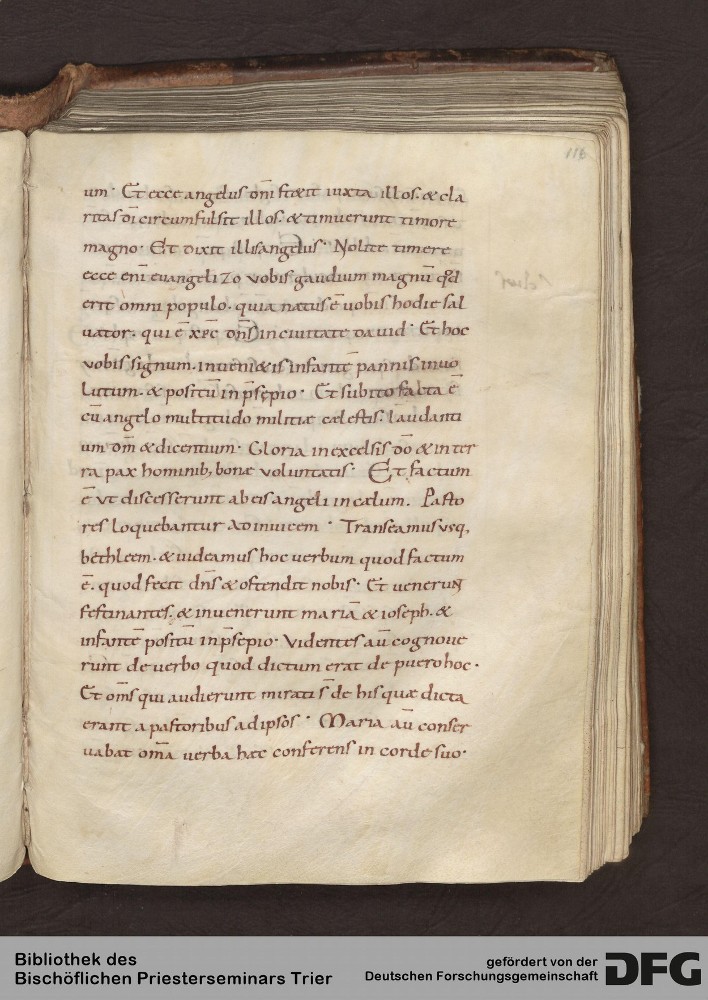 116
um· Et ecce angelus dn̄i stetit iuxta illos. & cla
ritas dī circumfulsit illos. & timuerunt timore
magno· Et dixit illis angelus· Nolite timere
ecce eni̅ euangelizo vobis gaudium magnu̅ qđ
erit omni populo. quia natus e̅ vobis hodie sal
vator. qui e̅ xp̅c dn̅s in civitate david· Et hoc
vobis signum. inveni&is infante̅ pannis invo
lutum. & positu̅ in p̅sepio· Et subito facta e̅
cu̅ angelo multitudo militiæ cælestis. laudanti
um dm̅ & dicentium· Gloria in excelsis do̅ & in ter
ra pax hominib; bonæ voluntatis· Et factum
e̅ ut discesserunt ab eis angeli in cælum. Pasto
res loquebantur ad invicem· Transeamus usq;
bethleem. & uideamus hoc verbum quod factum
e̅. quod fecit dn̅s & ostendit nobis· Et uenerunt
festinantes. & invenerunt maria̅ & ioseph. &
infante̅ positu̅ in p̅sepio· Videntes au̅ cognoue
runt de verbo quod dictum erat de puero hoc·
Et om̅s qui audierunt mirati s̅ de his quæ dicta
erant a pastoribus ad ipsos· Maria au̅ conser
uabat om̅a verba hæc conferens in corde suo·
Bibliothek des
Bischöflichen Priesterseminars Trier
gefördert von der
Deutschen Forschungsgemeinschaft
DFG